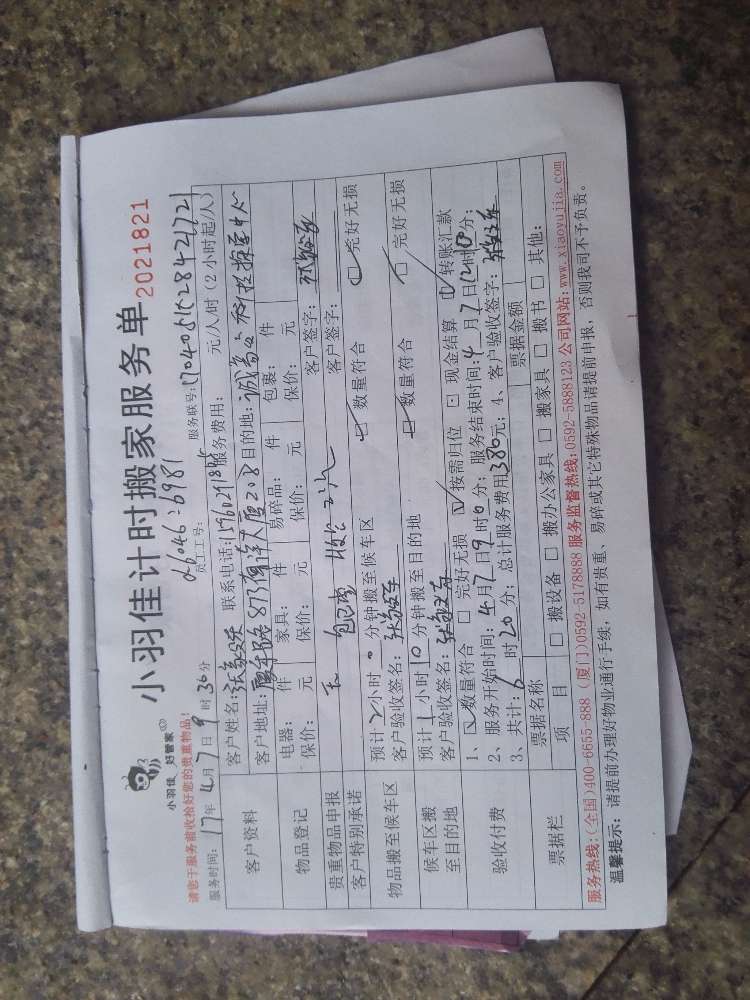 小羽佳计时搬家服务单
小羽佳 好管家
请您于服务前收拾好您的贵重物品!
2021821
员工工号: 26046:6981
服务时间: 17年4月7日9时30分
服务联号:
服务费用: 元/人/时(2小时起/人)
客户资料 客户姓名: 联系电话:
客户地址: 目的地:
物品登记 电器: 件 家具: 件 易碎品: 件 包裹: 件
保价: 元 保价: 元 保价: 元 保价: 元
贵重物品申报 无 客户签字:
客户特别承诺 客户签字:
物品搬至候车区 预计2小时0分钟搬至候车区 数量符合 完好无损
客户验收签名:
候车区搬至目的地 预计1小时10分钟搬至目的地 数量符合 完好无损
客户验收签名:
验收付费 1、数量符合 完好无损 按需归位 现金结算 转账汇款
2、服务开始时间:4月7日9时0分; 服务结束时间:4月7日
3、共计:6时20分; 总计服务费用380元; 4、客户验收签字:
票据栏 票据名称 票据金额
项目 搬设备 搬办公家具 搬家具 搬书 其他:
服务热线:(全国)400-6655-888 (厦门)0592-5178888 服务监督热线:0592-5888123 公司网站:www.xiaoyujia.com
温馨提示: 请提前办理好物业通行手续,如有贵重、易碎或其它特殊物品请提前申报,否则我司不予负责。